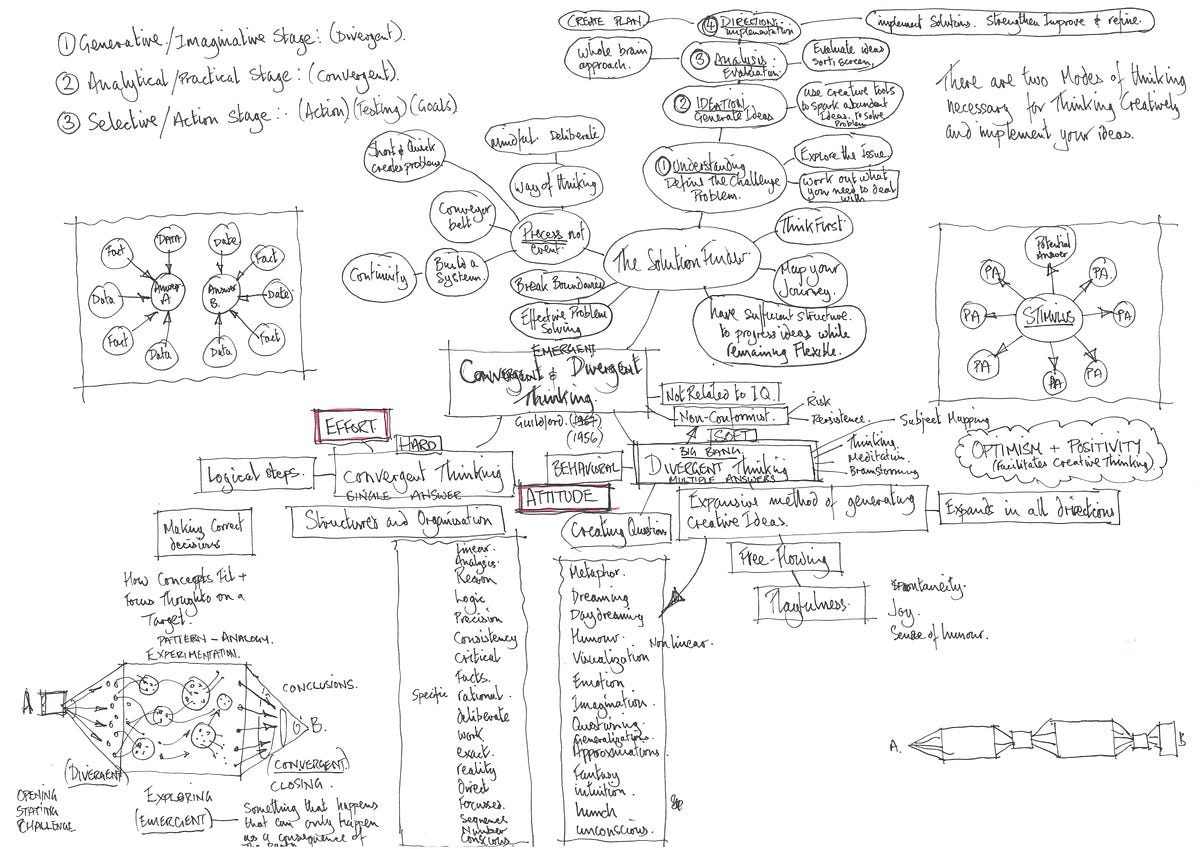 ① Generative/Imaginative Stage: (Divergent).
② Analytical/Practical Stage: (Convergent).
③ Selective/Action Stage: (Action)(Testing)(Goals)
CREATE PLAN
④ DIRECTION:
implementation
implement Solutions. Strengthen Improve & refine.
whole brain
approach.
③ Analysis:
Evaluation
Evaluate ideas
Sort, screen,
② IDEATION
Generate Ideas
use creative tools
to spark abundant
Ideas. To solve
Problem
① Understanding
Define The Challenge
Problem.
Explore the Issue
Work out what
you need to deal
with
There are two Modes of thinking
necessary for Thinking Creatively
and implement your ideas.
Short & Quick
creates problems
Mindful Deliberate
Way of thinking
Conveyor
belt
Process not
event.
Continuity
Build a
System.
Break Boundaries
Effective Problem
Solving
The Solution Finder
Think First
Map your
Journey.
have sufficient structure
to progress ideas while
remaining Flexible.
Fact
DATA
Date
Fact
Data
Answer
A
Answer
B.
Date
Fact
Data
Data
Fact
Potential
Answer
PA
PA.
PA
STIMULUS
PA
PA
PA
PA
EMERGENT
Convergent & Divergent
Thinking.
Guildford. (1967)
(1956)
Not Related to I.Q.
Non-Conformist.
Risk
Persistence.
EFFORT
HARD
SOFT
Logical steps.
Convergent Thinking
SINGLE ANSWER
BEHAVIOURAL
BIG BANG
DIVERGENT Thinking
MULTIPLE ANSWERS
Subject Mapping
Thinking
Meditation
Brainstorming
OPTIMISM + POSITIVITY
(Facilitates Creative Thinking)
ATTITUDE
Making Correct
decisions
Structures and Organisation
Creating Questions
Expansive method of generating
Creative Ideas.
Expands in all directions
Free-Flowing
Playfulness.
Spontaneity.
Joy.
Sense of humour.
How Concepts Fit +
Focus Thoughts on a
Target.
PATTERN - ANALOGY.
EXPERIMENTATION.
Linear.
Analysis.
Reason
Logic
Precision
Consistency
Critical
Facts.
Specific rational.
deliberate
work
exact.
reality
Direct
Focussed
Sequence
Number
Conscious.
Metaphor.
Dreaming
Daydreaming
Humour. Non linear.
Visualization
Emotion
Imagination.
Questioning.
Generalizations.
Approximations.
Fantasy
intuition.
hunch
unconscious.
A
CONCLUSIONS.
B.
(DIVERGENT)
(CONVERGENT)
CLOSING.
OPENING
STATING
CHALLENGE
EXPLORING
(EMERGENT)
Something that happens
that can only happen
as a consequence of
A.
B